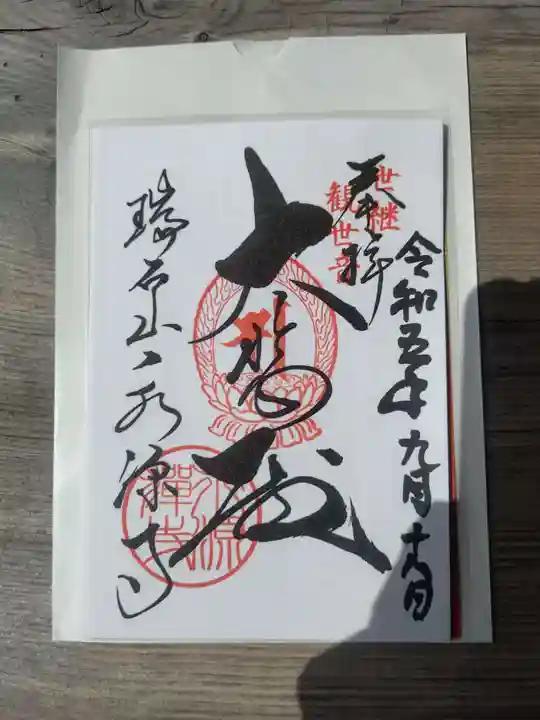 世継
観世音
奉拝
令和五年九月十六日
大悲殿
瑞石山永源寺
永源
禅寺